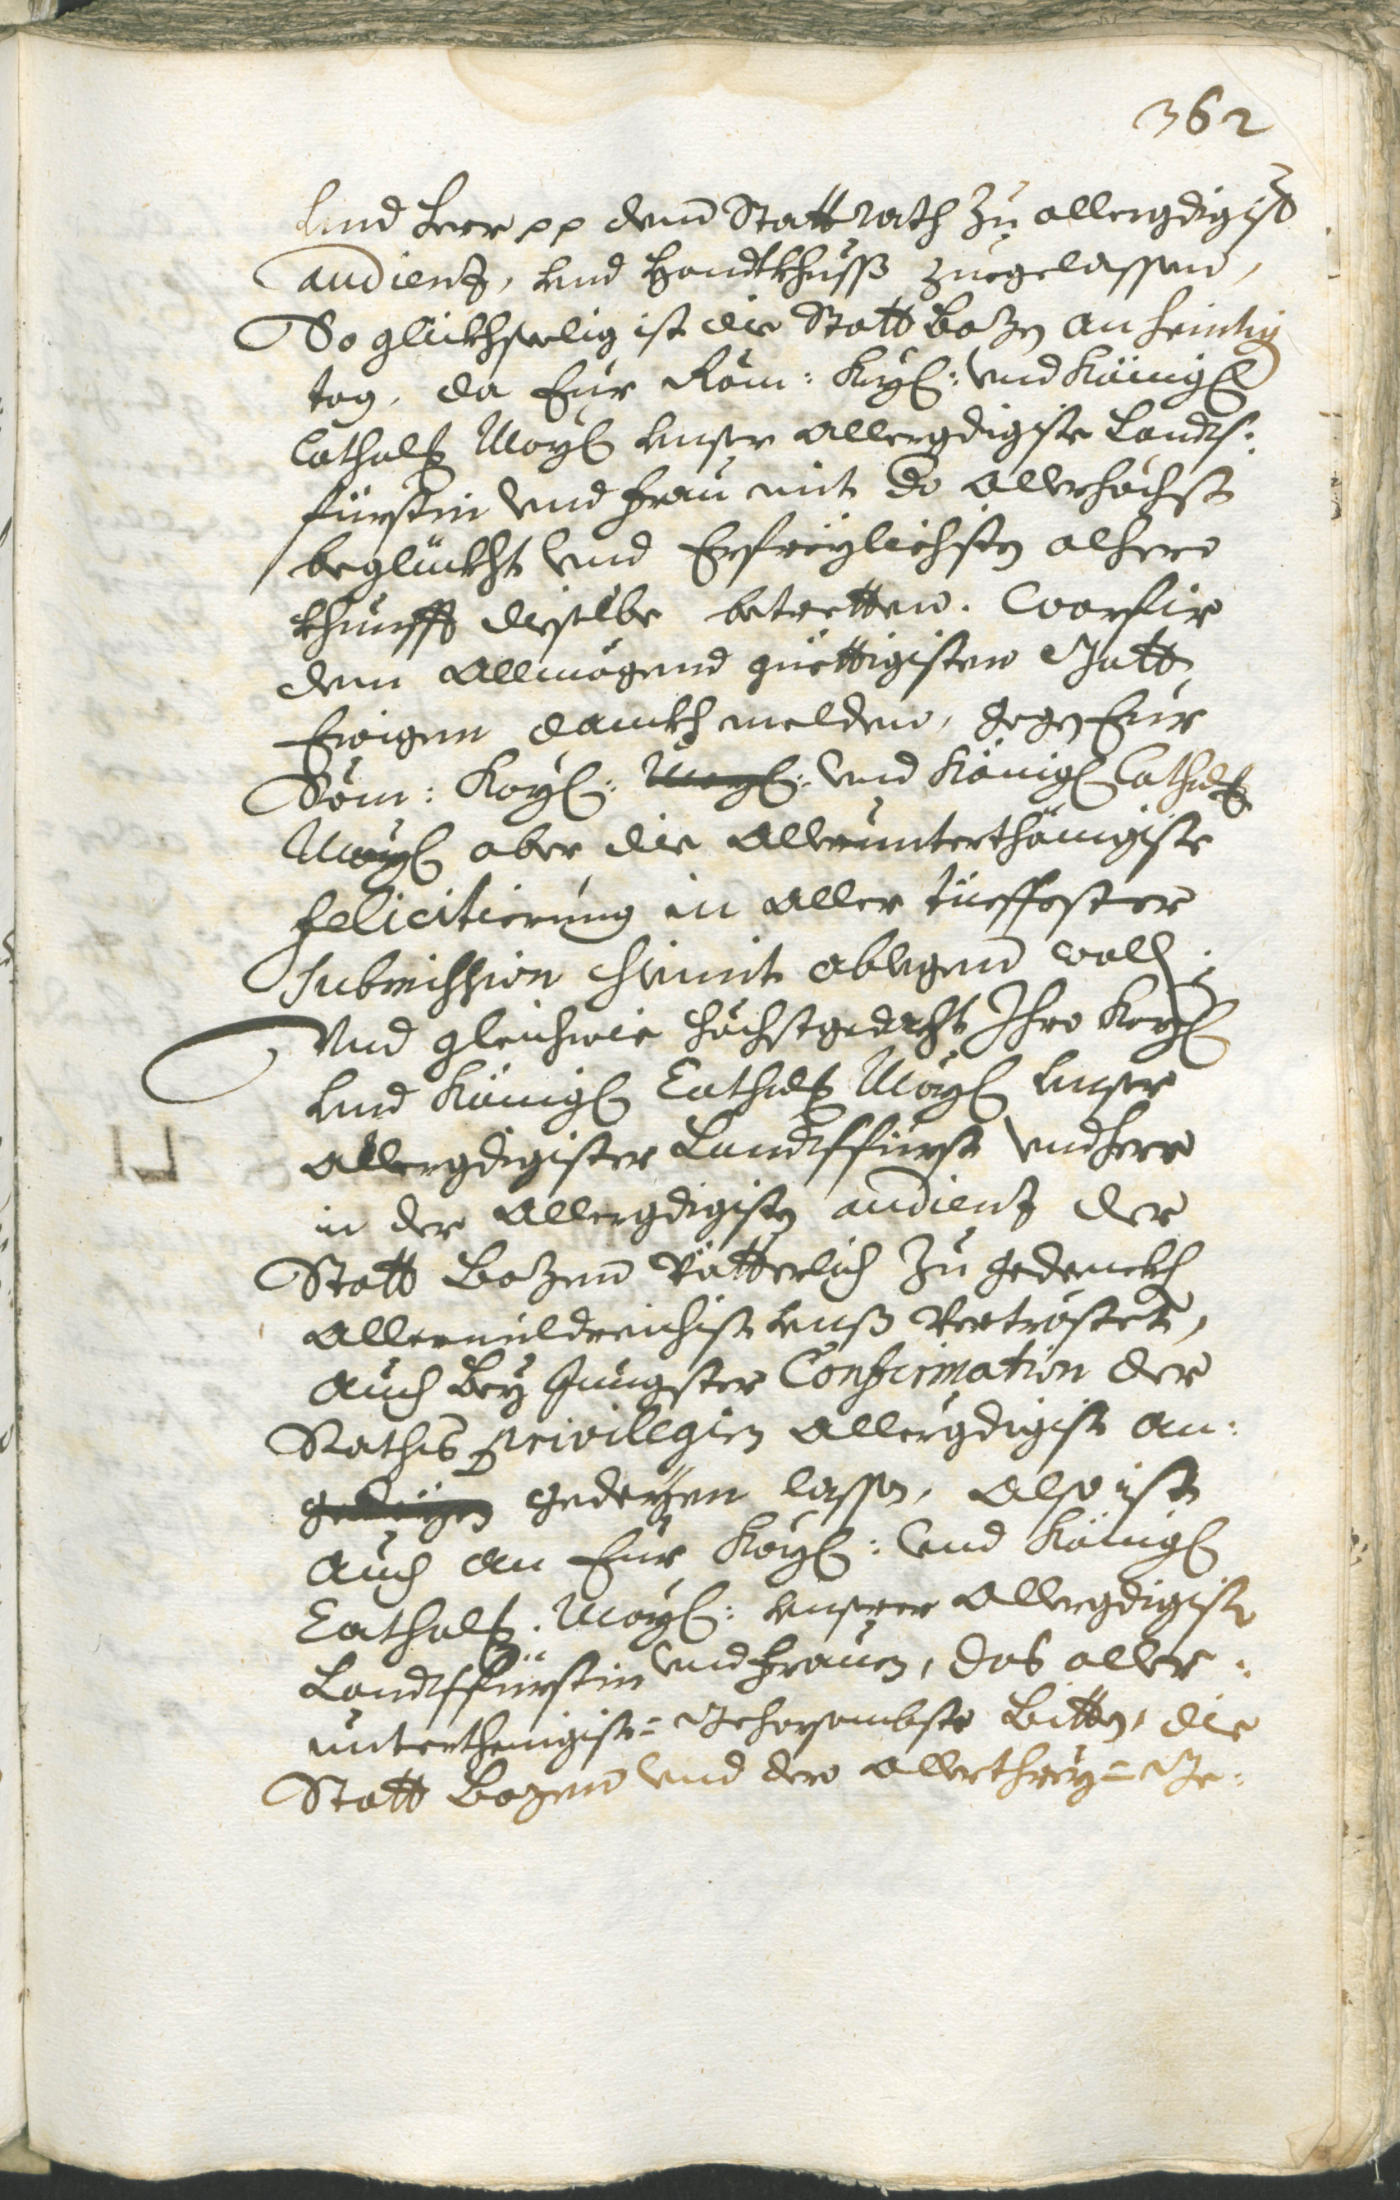 362
und Herr pp dem Statt Rath zu allergdigist
audienz, und Handtkhuss zuegelassen,
So glückhselig ist die Statt Bozen an heintig
tag, da Eur Röm: Kayl: und Königl
Cathol: Mayl unser allergdigiste Landts:
fürstin und Frau mit do allerhöchst
beglückht und Erfreylichisten alhero
khunfft dieselbe betretten. Worfir
dem Allmögend güettigisten Gott
Ewigen danckh melden, gegen Eur
Röm: Kayl: Mayl: und Königl Cathol:
Mayl aber die allerunterthänigiste
felicitierung in aller tüeffester
Submission hiemit ablegen woll.
Und gleichwie höchstgedacht Ihro Kayl
und Königl Cathol: Mayl unser
allergdigister Landtsfürst und Herr
in der allergdigisten audienz der
Statt Bozen Vätterlich zu gedenckh
allermildreichist unß Vertröstet,
auch bey Jüngster Confirmation der
Rathis privillegien allergdigist an:
gedeyen gedeyen lassen, also ist
auch an Eur Kayl: und Königl
Cathol: Mayl: unserer allergdigiste
Landtsfürstin und Frauen, das aller:
unterthenigist= Gehorsambste Bitten, die
Statt Bozen und dero allerthrey= Ge: